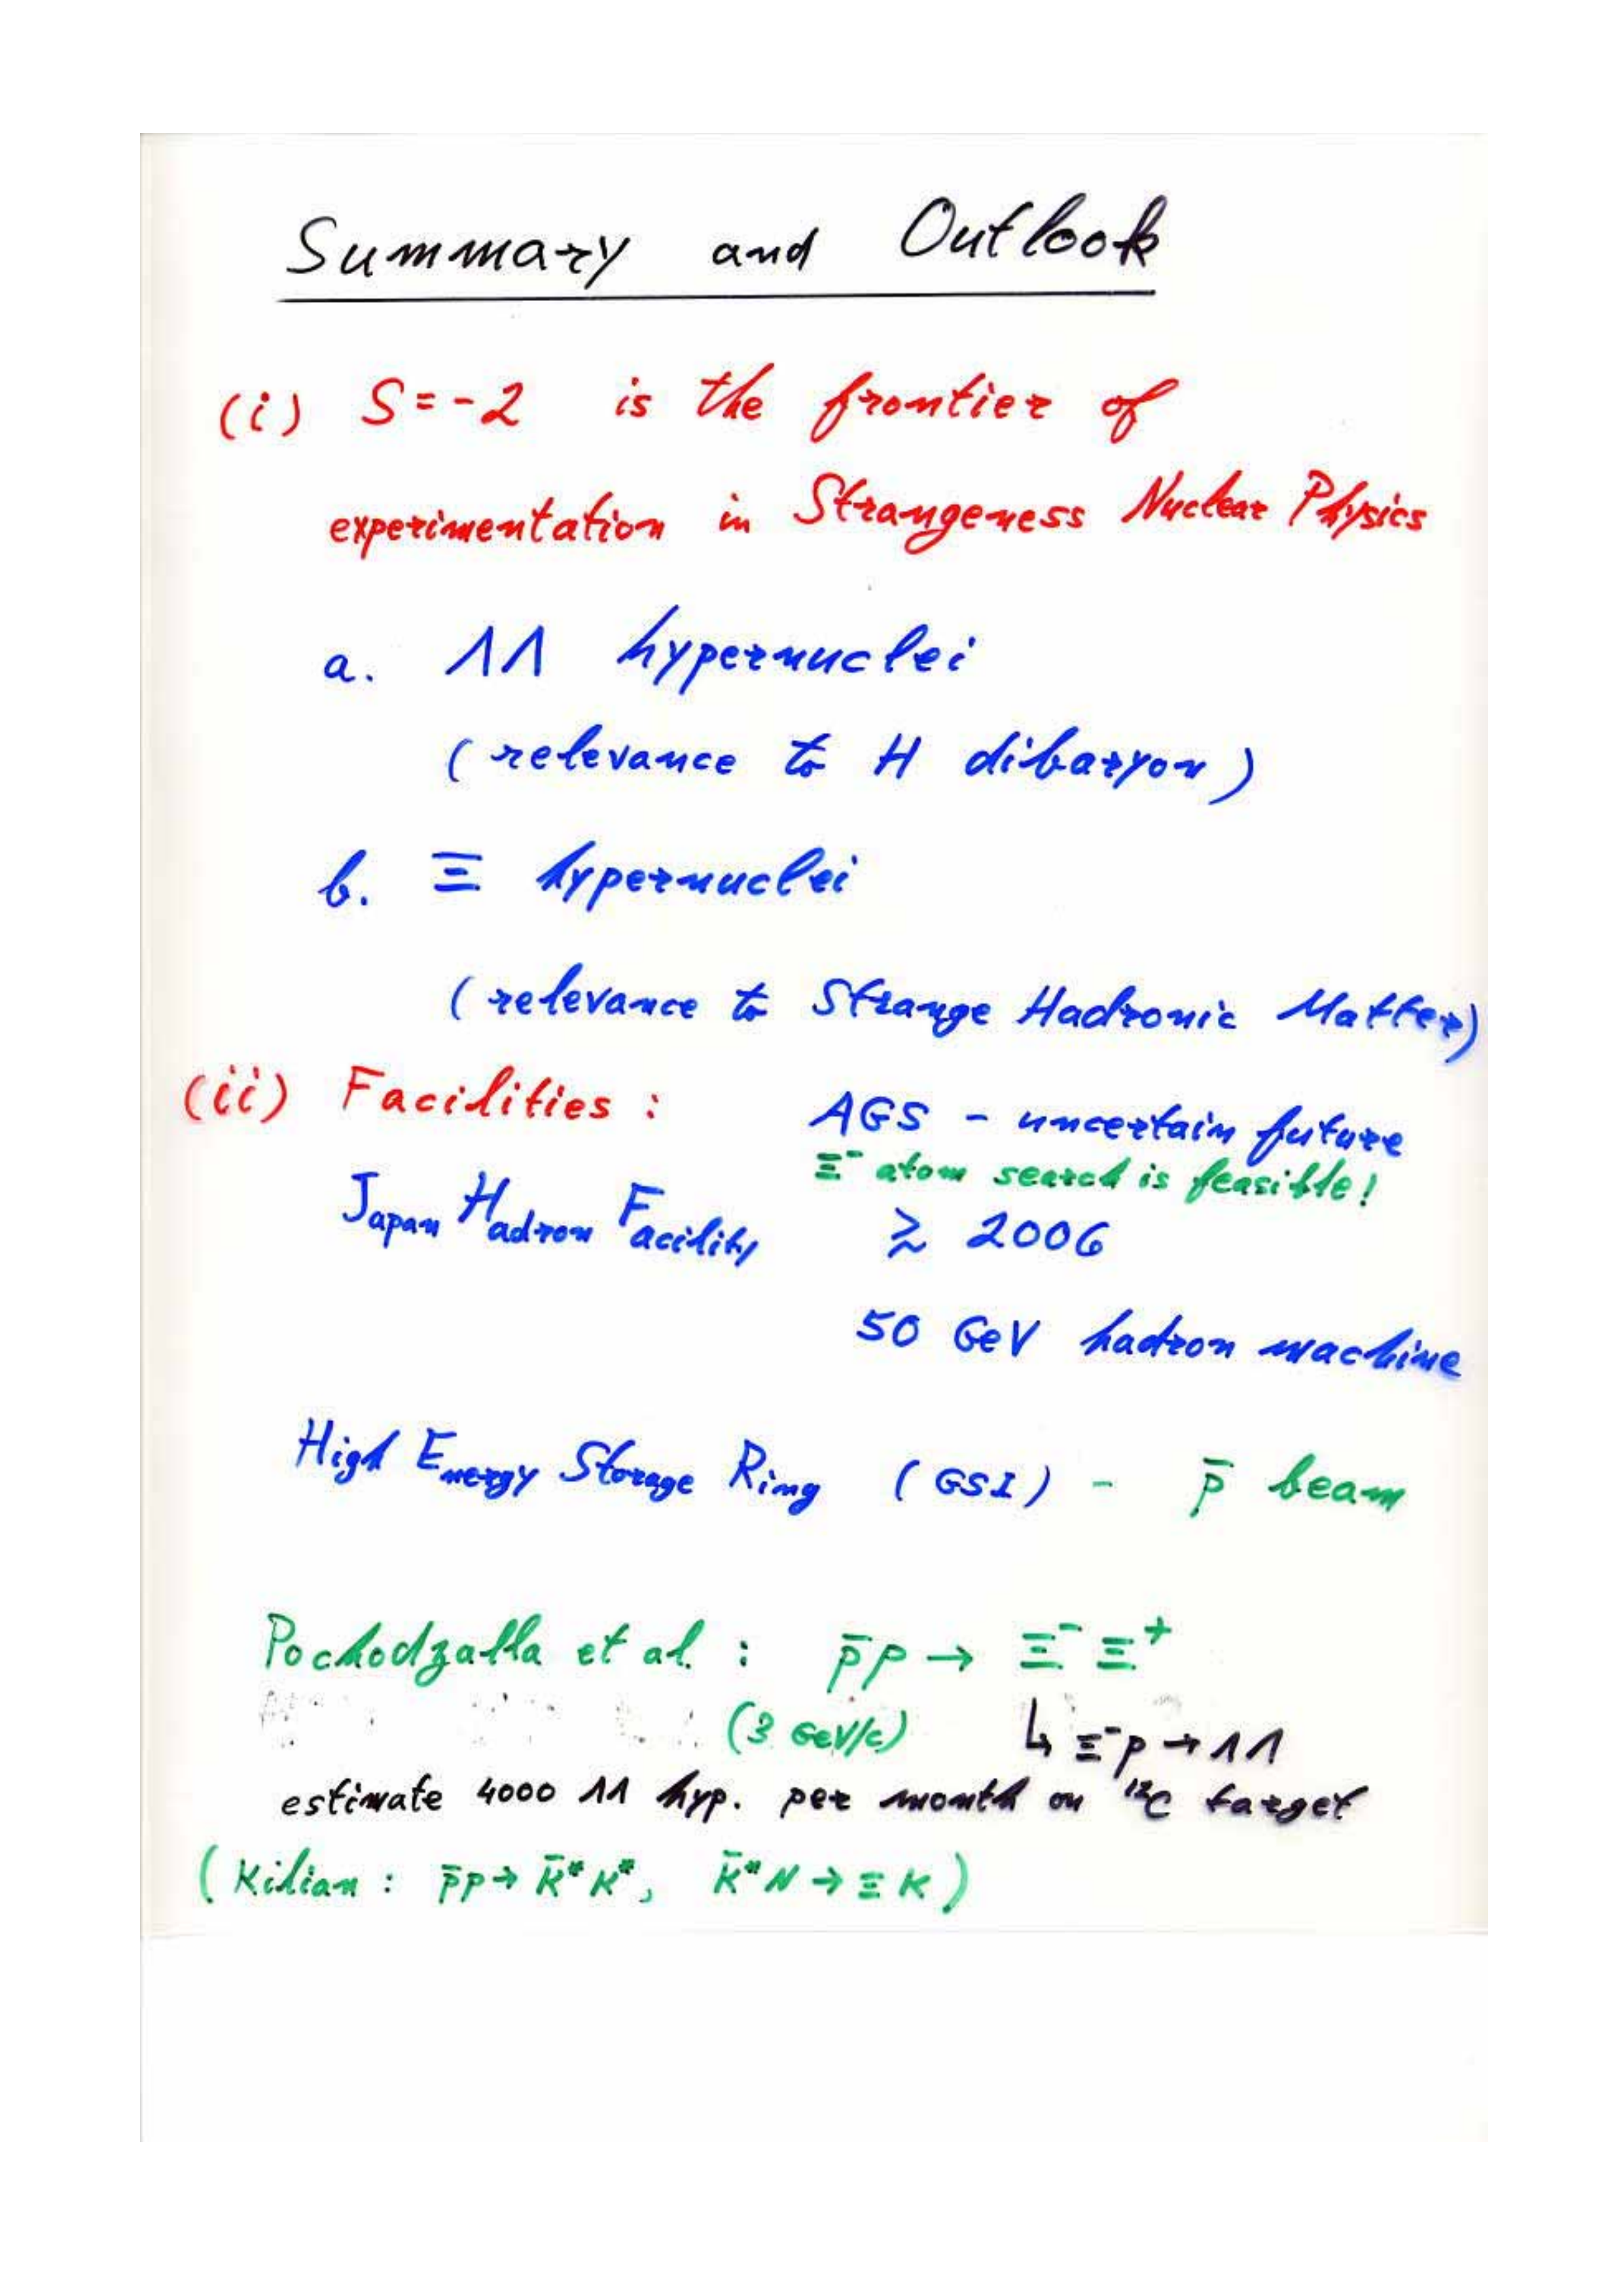 Summary and Outlook
(i) S = -2 is the frontier of
experimentation in Strangeness Nuclear Physics
a. ΛΛ hypernuclei
(relevance to H dibaryon)
b. Ξ hypernuclei
(relevance to Strange Hadronic Matter)
(ii) Facilities : AGS - uncertain future
Ξ⁻ atom search is feasible!
Japan Hadron Facility ≳ 2006
50 GeV hadron machine
High Energy Storage Ring (GSI) - p̄ beam
Pochodzalla et al. : p̄p → Ξ⁻ Ξ⁺
(3 GeV/c) ↳ Ξ⁻p → ΛΛ
estimate 4000 ΛΛ hyp. per month on ¹²C target
(Kilian : p̄p → K̄* K*, K̄* N → Ξ K)